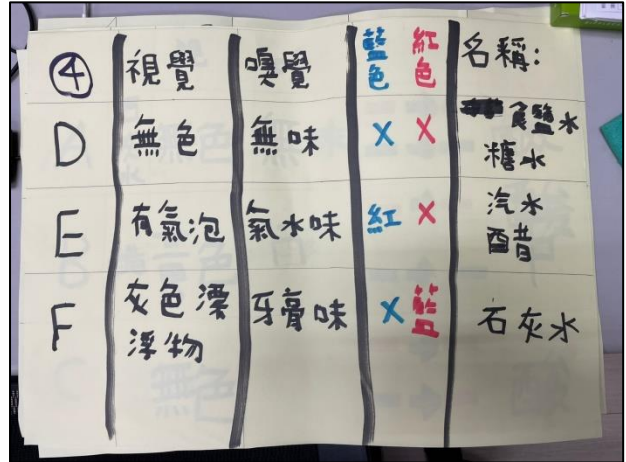 ④ 視覺 嗅覺 藍色 紅色 名稱:
D 無色 無味 X X 食鹽水
糖水
E 有氣泡 氣水味 紅 X 汽水
醋
F 灰色漂
浮物 牙膏味 X 藍 石灰水